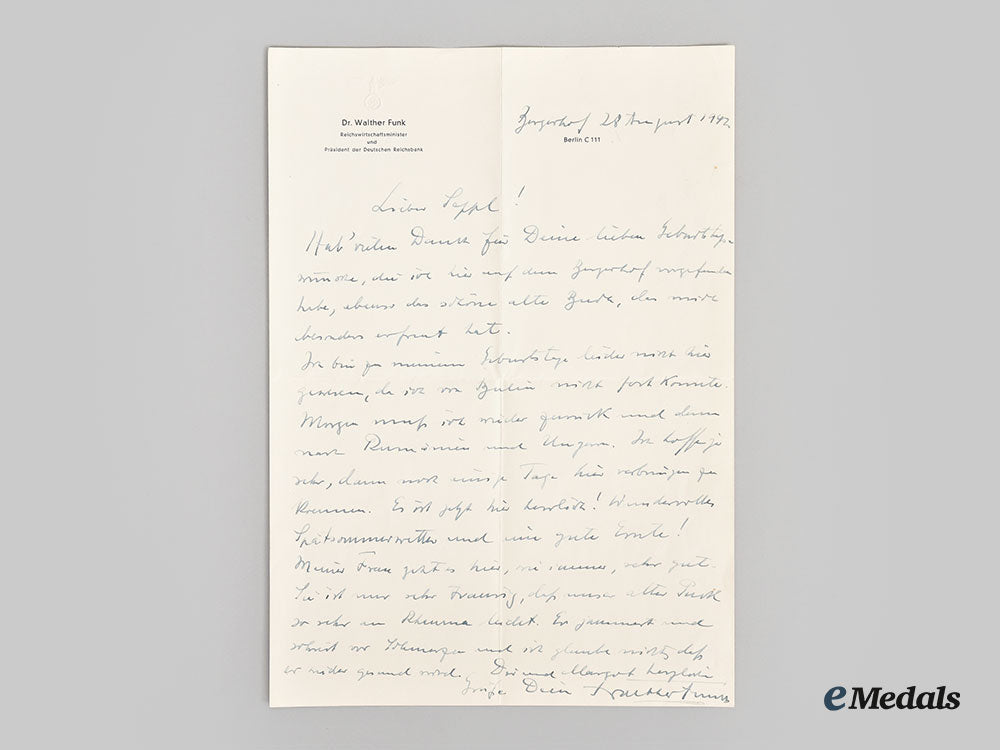 Dr. Walther Funk
Reichswirtschaftsminister
und
Präsident der Deutschen Reichsbank
Bergerhof 28 August 1942
Berlin C 111
Lieber Seppl!
Hab' vielen Dank für Deine lieben Geburtstags-
wünsche, die ich hier auf dem Bergerhof vorgefunden
habe, ebenso das schöne alte Buch, das mich
besonders erfreut hat.
Ich bin zu meinem Geburtstage leider nicht hier
gewesen, da ich von Berlin nicht fort konnte.
Morgen muß ich wieder zurück und dann
nach Rumänien und Ungarn. Ich hoffe
sehr, dann noch einige Tage hier verbringen zu
können. Es ist jetzt hier herrlich! Wundervolles
Spätsommerwetter und eine gute Ernte!
Meiner Frau geht es hier, wie immer, sehr gut.
Sie ist nur sehr traurig, daß unser alter
so sehr an Rheuma leidet. Er jammert und
schreit vor Schmerzen und ich glaube nicht, daß
er wieder gesund wird. Dir und Margot herzliche
Grüße Dein Walther Funk
eMedals